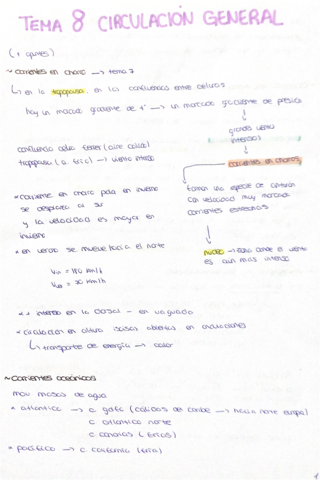 TEMA 8 CIRCULACIÓN GENERAL
(+ apuntes)
~ corrientes en chorro → tema 7
↳ en la tropopausa, en las confluencias entre células
hay un marcado gradiente de tª → un marcado gradiente de presión
↓
grandes vientos intensos
↓
corrientes en chorros
confluencia célula ferrel (aire cálido)
tropopausa → viento intenso
forman una especie de cinturón
con velocidad muy marcada
corrientes estrechas
↓
núcleo → zona donde el viento
es aún más intenso
* corriente en chorro polar en invierno
se desplaza al sur
y la velocidad es mayor en
invierno
* en verano se mueve hacia el norte
km/h
km/h
intenso en la dorsal - en vaguada
* circulación en altura abiertas en ondulaciones
↳ transporte de energía → calor
~ corrientes oceánicas
mov masas de agua
* atlántico → c. golfo (cálidas de caribe → hacia norte europa)
c. atlántico norte
c. canarias (frías)
* pacífico → c. california (fría)
1